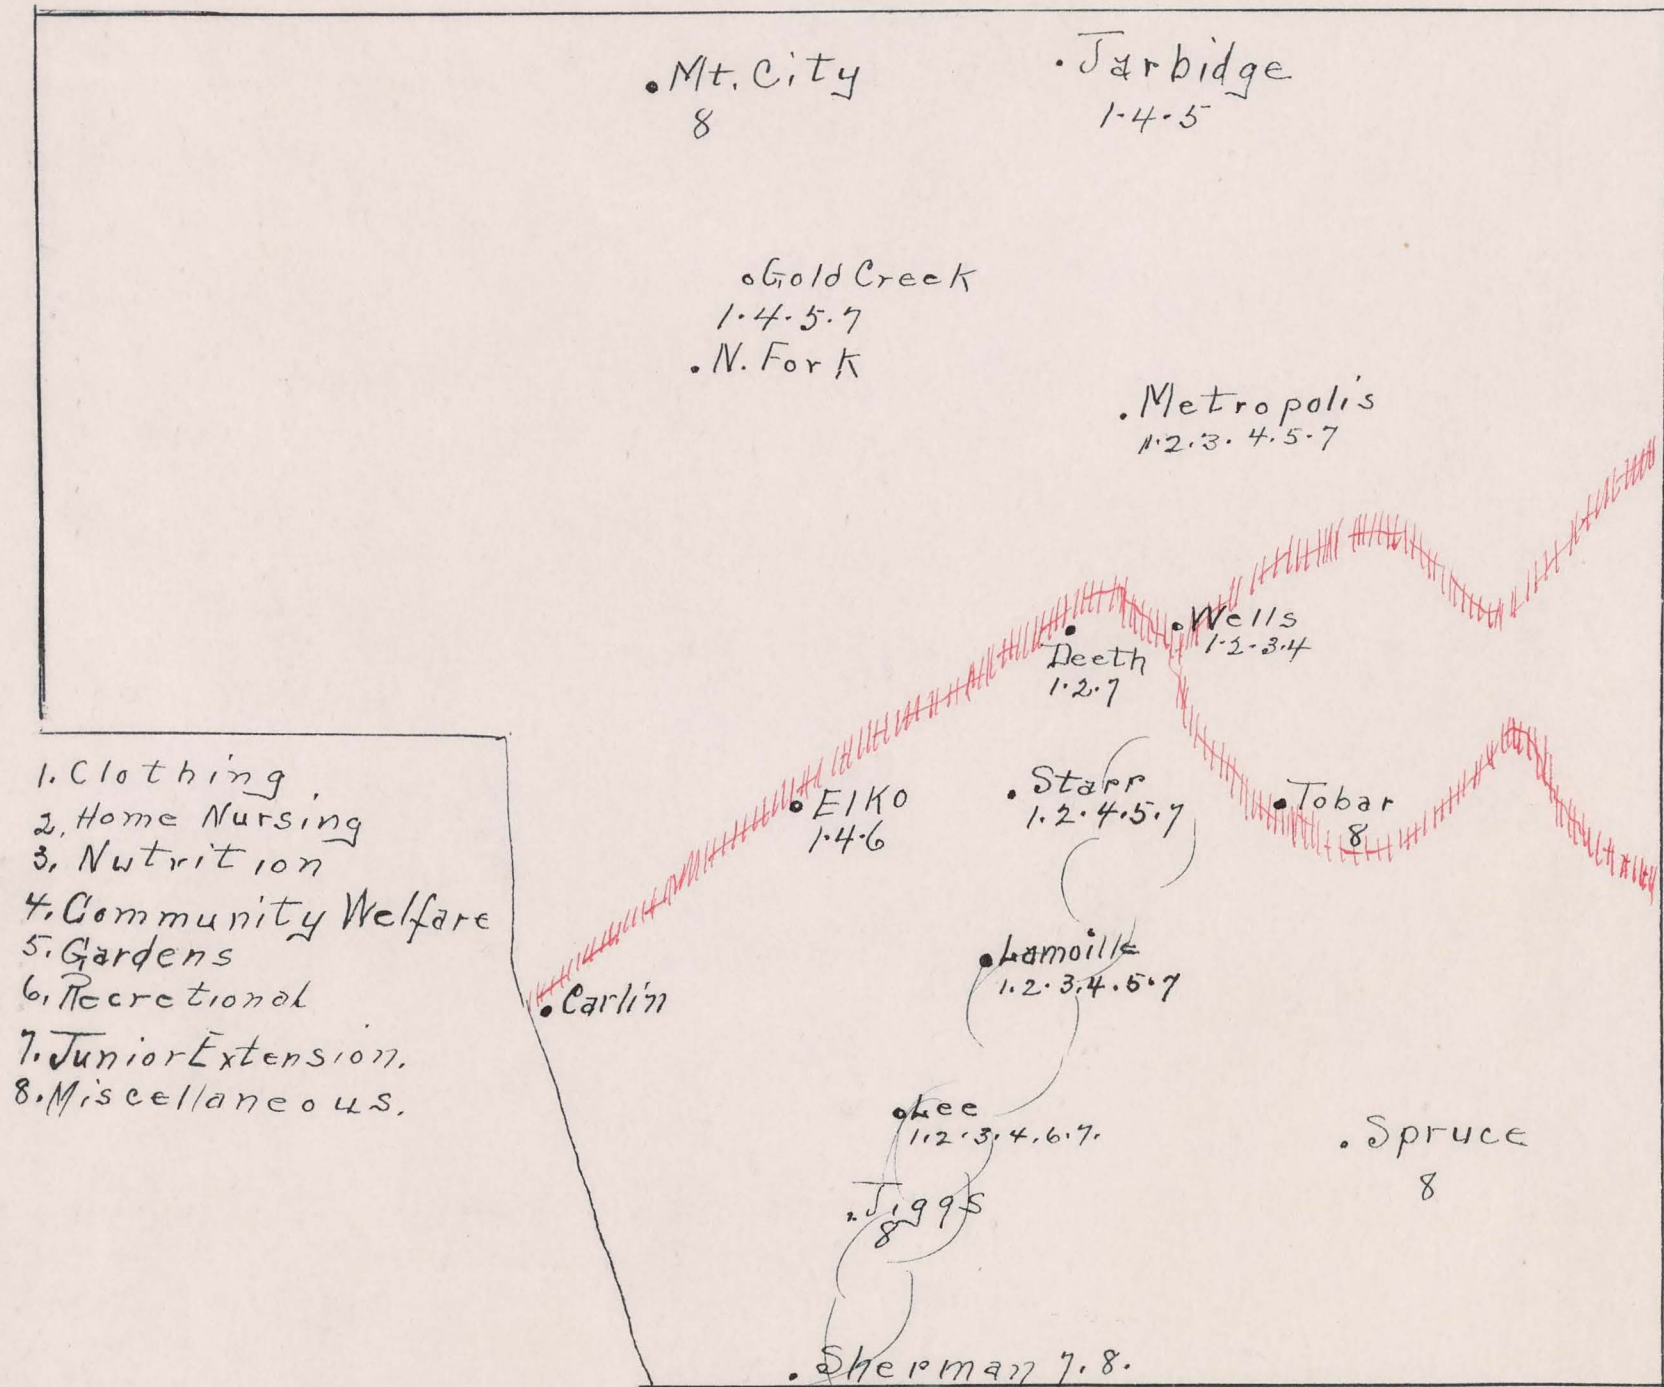 Mt. City
8
Jarbidge
1.4.5
Gold Creek
1.4.5.7
N. Fork
Metropolis
1.2.3.4.5.7
Wells
1.2.3.4
Deeth
1.2.7
Starr
1.2.4.5.7
Tobar
8
Elko
1.4.6
Lamoille
1.2.3.4.5.7
Carlin
Lee
1.2.3.4.6.7.
Jiggs
8
Spruce
8
Sherman 7.8.
1. Clothing
2. Home Nursing
3. Nutrition
4. Community Welfare
5. Gardens
6. Recretional
7. Junior Extension.
8. Miscellaneous.